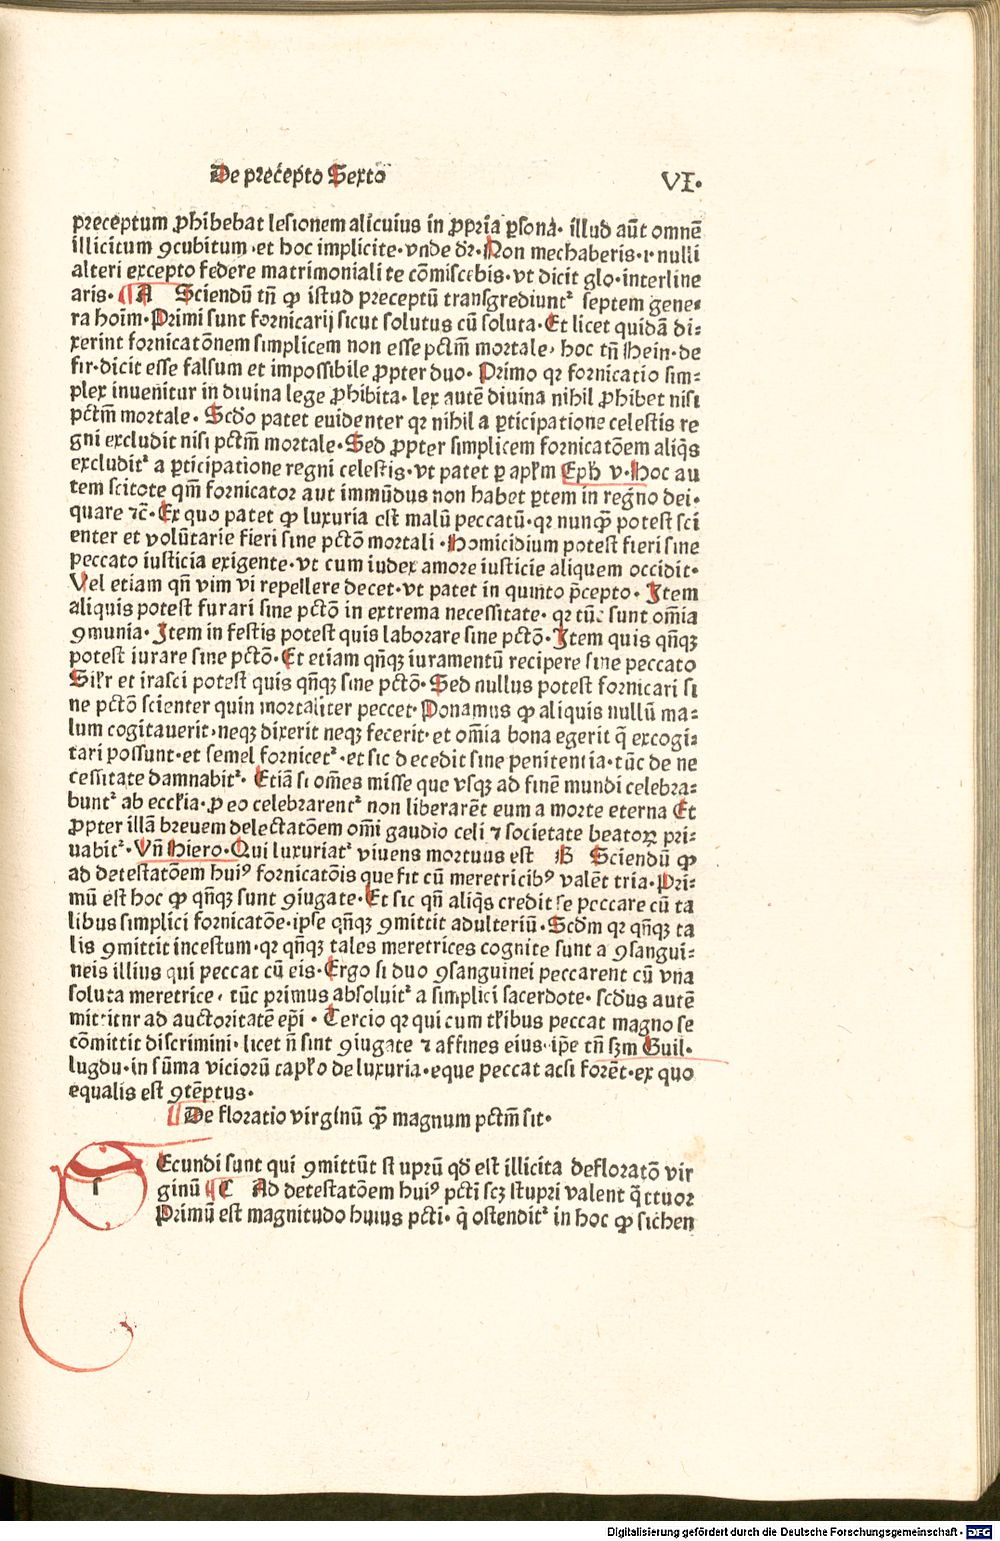 De precepto Sexto
VI.
preceptum ꝓhibebat lesionem alicuius in ꝓpria ꝑsona· illud aūt omnē
illicitum ꝯcubitum·et hoc implicite·vnde dr̄·Non mechaberis·i·nulli
alteri excepto federe matrimoniali te cōmiscebis·vt dicit glo·interline
aris· A Sciendū tn̄ ꝙ istud preceptū transgrediuntᷣ septem gene⸗
ra hoīm·Primi sunt fornicarij sicut solutus cū soluta·Et licet quidā di⸗
xerint fornicatōnem simplicem non esse pctm̄ mortale, hoc tn̄ Hein·de
fir·dicit esse falsum et impossibile ꝓpter duo· Primo qꝛ fornicatio sim⸗
plex inuenitur in diuina lege ꝓhibita· lex autē diuina nihil ꝓhibet nisi
pctm̄ mortale· Scd̄o patet euidenter qꝛ nihil a ꝑticipatione celestis re
gni excludit nisi pctm̄ mortale·Sed ꝓpter simplicem fornicatōem aliq̄s
excluditᷣ a ꝑticipatione regni celestis·vt patet ꝑ apl̄m Eph v·Hoc au
tem scitote qm̄ fornicator aut immūdus non habet ꝑtem in regno dei·
quare ⁊c̄·Ex quo patet ꝙ luxuria est malū peccatū·qꝛ nunqꝫ potest sci
enter et volūtarie fieri sine pctō mortali·Homicidium potest fieri sine
peccato iusticia exigente·vt cum iudex amore iusticie aliquem occidit·
Vel etiam qn̄ vim vi repellere decet·vt patet in quinto p̄cepto· Item
aliquis potest furari sine pctō in extrema necessitate· qꝛ tūc sunt om̄ia
ꝯmunia· Item in festis potest quis laborare sine pctō·Item quis qn̄qꝫ
potest iurare sine pctō·Et etiam qn̄qꝫ iuramentū recipere sine peccato
Sil̄r et irasci potest quis qn̄qꝫ sine pctō·Sed nullus potest fornicari si
ne pctō scienter quin mortaliter peccet·Ponamus ꝙ aliquis nullū ma⸗
lum cogitauerit·neqꝫ dixerit neqꝫ fecerit·et om̄ia bona egerit q̄ excogi⸗
tari possunt·et semel fornicetᷣ·et sic decedit sine penitentia·tūc de ne
cessitate damnabitᷣ· Etiā si om̄es misse que vsqꝫ ad finē mundi celebra⸗
buntᷣ ab eccl̄ia·ꝓ eo celebrarentᷣ non liberarēt eum a morte eterna Et
ꝓpter illā breuem delectatōem om̄i gaudio celi ⁊ societate beatoꝝ pri⸗
uabitᷣ·Vn̄ Hiero·Qui luxuriatᷣ viuens mortuus est B Sciendū ꝙ
ad detestatōem huiꝰ fornicatōis que fit cū meretricibꝰ valēt tria·Pri⸗
mū est hoc ꝙ qn̄qꝫ sunt ꝯiugate·Et sic qn̄ aliq̄s credit se peccare cū ta
libus simplici fornicatōe·ipse qn̄qꝫ ꝯmittit adulteriū·Scd̄m qꝛ qn̄qꝫ ta
lis ꝯmittit incestum·qꝛ qn̄qꝫ tales meretrices cognite sunt a ꝯsangui⸗
neis illius qui peccat cū eis·Ergo si duo ꝯsanguinei peccarent cū vna
soluta meretrice, tūc primus absoluitᷣ a simplici sacerdote·scd̄us autē
mittitur ad auctoritatē ep̄i · Tercio qꝛ qui cum tl̄ibus peccat magno se
cōmittit discrimini·licet n̄ sint ꝯiugate ⁊ affines eius·ip̄e tn̄ sꝫm Guil·
lugdu·in sūma viciorū capl̄o de luxuria·eque peccat acsi forēt·ex quo
equalis est ꝯtēptus·
De floratio virginū qꝫ magnum pctm̄ sit·
s
Ecundi sunt qui ꝯmittūt stuprū qd̄ est illicita defloratō vir
ginū C Ad detestatōem huiꝰ pcti scꝫ stupri valent q̄ttuor
Primū est magnitudo huius pcti·q̄ ostenditᷣ in hoc ꝙ sichen
Digitalisierung gefördert durch die Deutsche Forschungsgemeinschaft - DFG